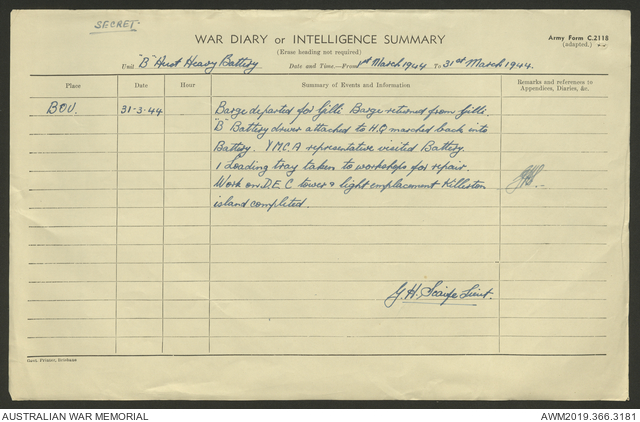 SECRET
WAR DIARY or INTELLIGENCE SUMMARY
Army Form C.2118
(adapted.)
(Erase heading not required)
Unit "B" Aust Heavy Battery
Date and Time.—From 1st March 1944 To 31st March 1944.
Place
Date
Hour
Summary of Events and Information
Remarks and references to
Appendices, Diaries, &c.
BOU. 31-3-44 Barge departed for Gilli Barge returned from Gilli.
"B" Battery driver attached to H.Q marched back into
Battery. YMCA representative visited Battery.
1 Loading tray taken to workshops for repair.
Work on D.E.C tower & light emplacement Killerton
island completed.
G. H. Scaife Lieut.
Govt. Printer, Brisbane
AUSTRALIAN WAR MEMORIAL
AWM2019.366.3181